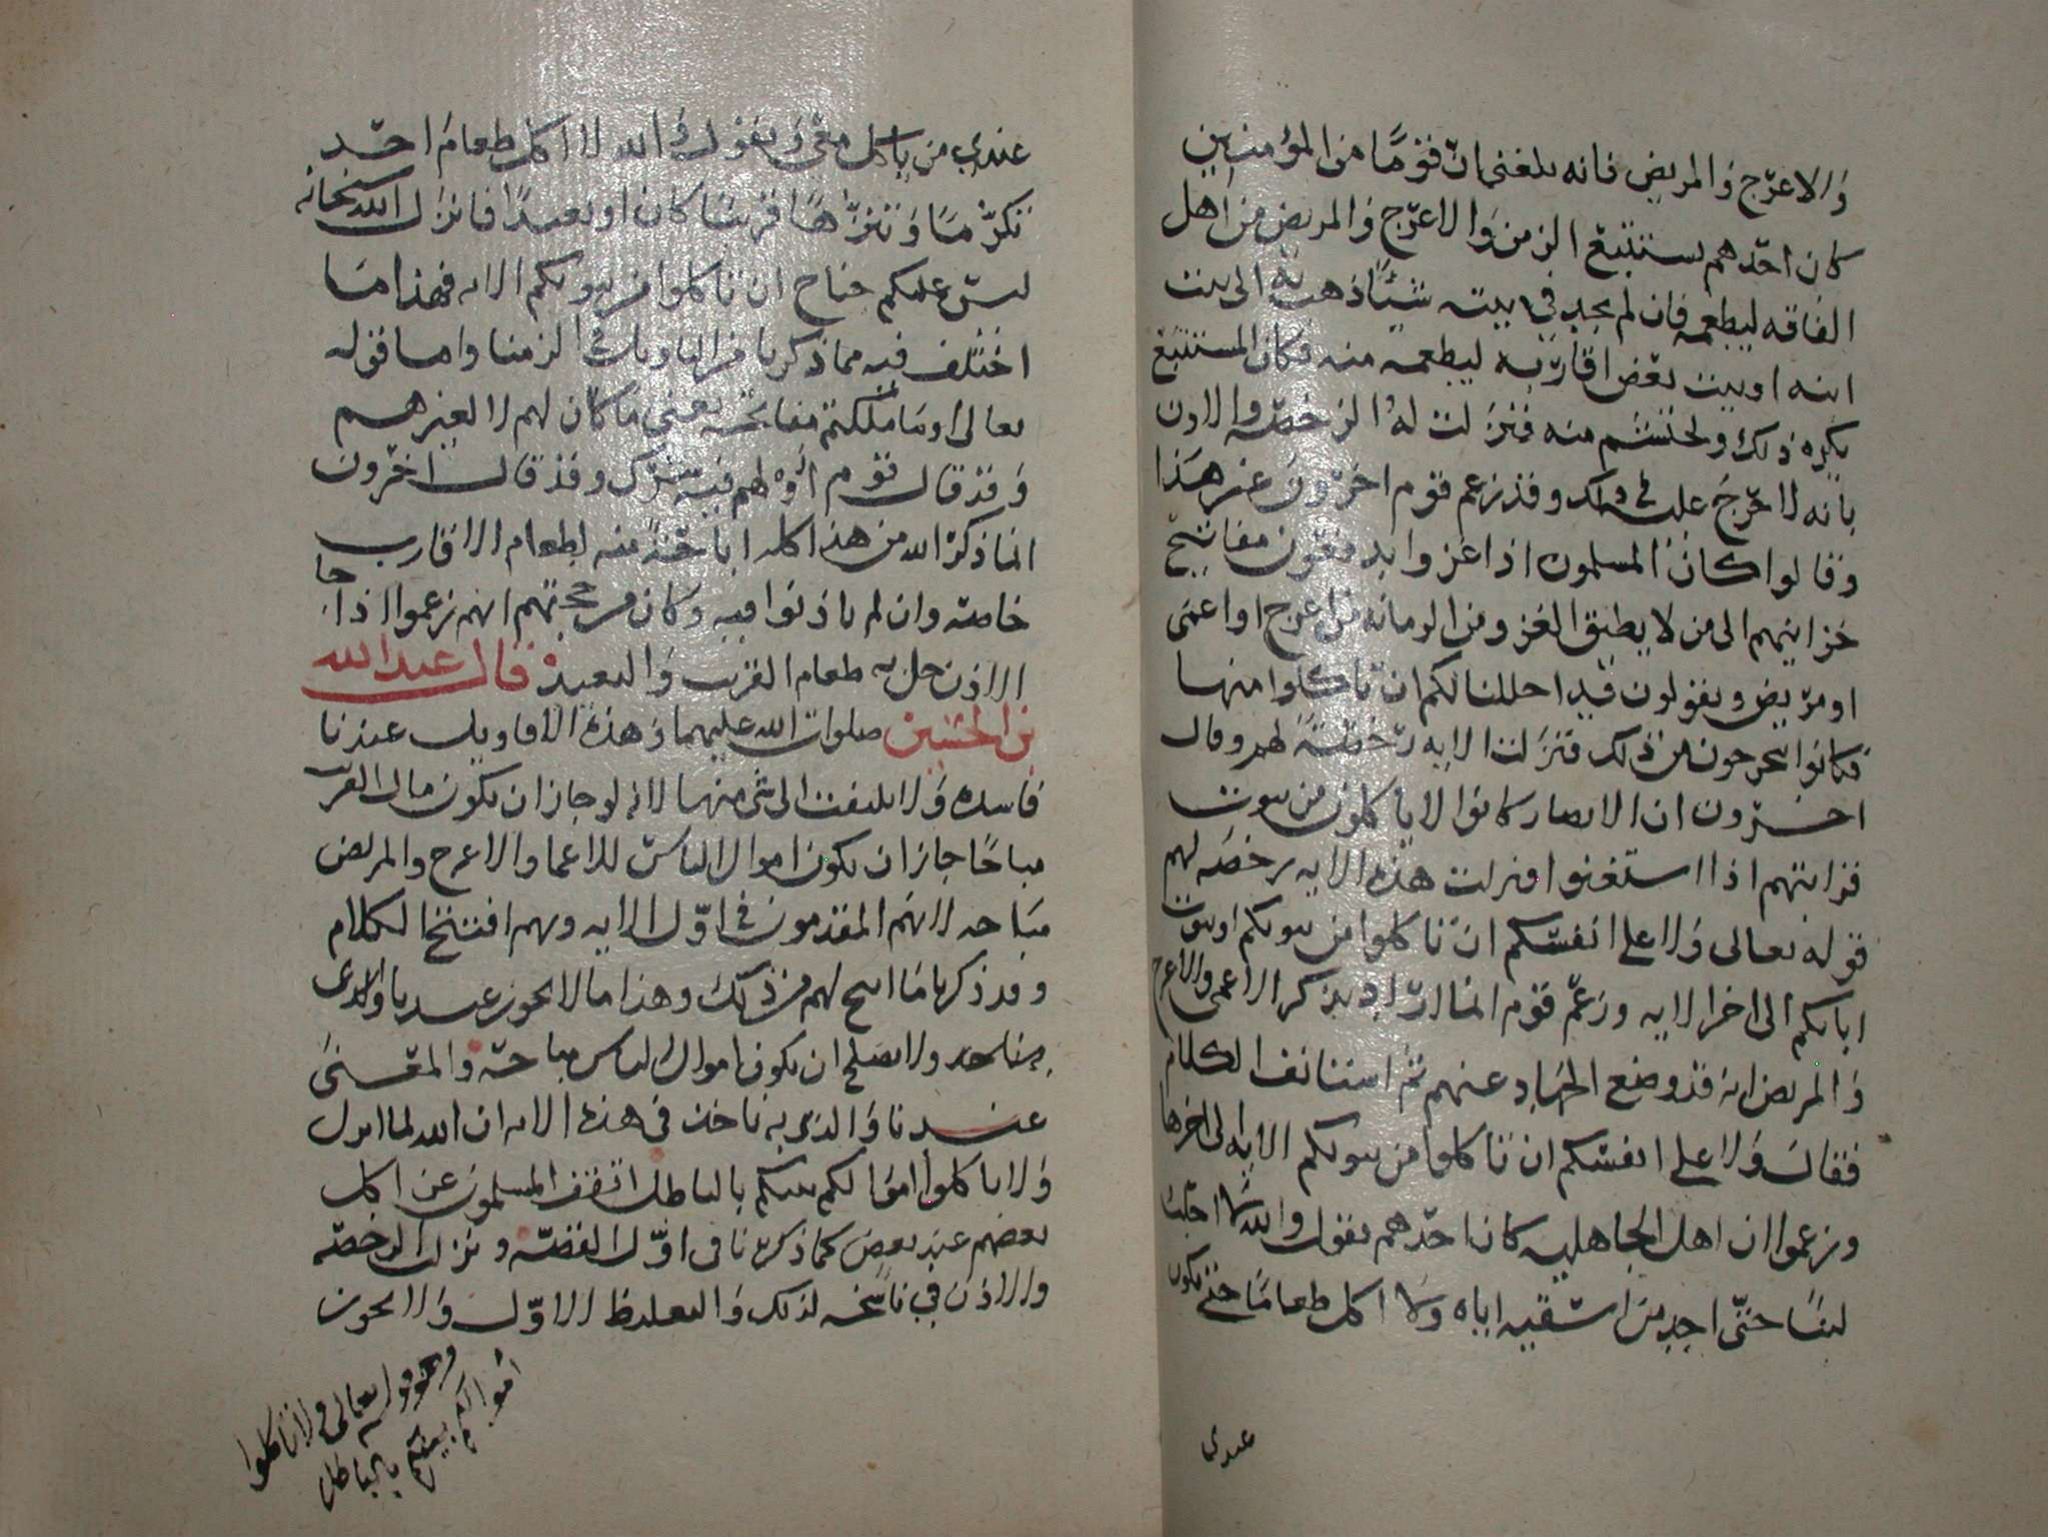 والاعرج والمريض فانه بلغني ان قوما من المؤمنين
كان احدهم يستتبع الزمن والاعرج والمريض من اهل
الفاقه ليطعمه فان لم يجد في بيته شيئا ذهب به الى بيت
ابنه او بيت بعض اقاربه ليطعمه منه فكان المستتبع
يكره ذلك ويحتشم منه فنزلت له الرخصة والاذن
بانه لا حرج عليه في ذلك وقد زعم قوم اخرون غير هذا
وقالوا كان المسلمون اذا غزوا يدفعون مفاتيح
خزاينهم الى من لا يطيق الغزو من الزمانه من اعرج او اعمى
او مريض ويقولون قد احللنا لكم ان تاكلوا منها
فكانوا يتحرجون من ذلك فنزلت الايه رخصة لهم وقال
اخرون ان الانصار كانوا لا ياكلون من بيوت
قرابتهم اذا استغنوا فنزلت هذه الايه رخصه لهم
قوله تعالى ولا على انفسكم ان تاكلوا من بيوتكم او بيوت
ابايكم الى اخر الايه وزعم قوم انما اراد بذكر الاعمى والاعرج
والمريض انه قد وضع الجهاد عنهم ثم استانف الكلام
فقال ولا على انفسكم ان تاكلوا من بيوتكم الايه الى اخرها
وزعموا ان اهل الجاهليه كان احدهم يقول والله لا احلبت
لبنا حتى اجد من اسقيه اياه ولا اكل طعاما حتى يكون
عندي
عندي من ياكل معي ويقول والله لا اكل طعام احد
تكرما وتنزها قريبا كان او بعيدا فانزل الله سبحانه
ليس عليكم جناح ان تاكلوا من بيوتكم الايه فهذا ما
اختلف فيه مما ذكرنا من التاويل في الزمنا واما قوله
تعالى او ما ملكتم مفاتحه يعني ما كان لهم لا لغيرهم
وقد قال قوم او لهم فيه شرك وقد قال اخرون
انما ذكر الله من هذا كله اباحة منه لطعام الاقارب
خاصة وان لم ياذنوا فيه وكان من حجتهم انهم زعموا اذا جا
الاذن حل به طعام القريب والبعيد قال عبدالله
بن الحسين صلوات الله عليهما وهذه الاقاويل عندنا
فاسده ولا يلتفت الى شي منها لانه لو جاز ان يكون مال القريب
مباحا جاز ان يكون اموال الناس للاعما والاعرج والمريض
مباحه لانهم المقدمون في اول الايه وبهم افتتح الكلام
وقد ذكرنا ما ابيح لهم من ذلك وهذا ما لا يجوز عندنا ولا لدى
ولا يصلح ان يكون اموال الناس مباحة والمعنى
عندنا والذي به ناخذ في هذه الايه ان الله لما انزل
ولا تاكلوا اموالكم بينكم بالباطل توقف المسلمون عن اكل
بعضهم عند بعض كما ذكرنا في اول القصة ونزلت الرخصة
والاذن في ناسخه لذلك والتغليظ الاول ولا يجوز
وهو قوله تعالى ولا تاكلوا
اموالكم بينكم بالباطل